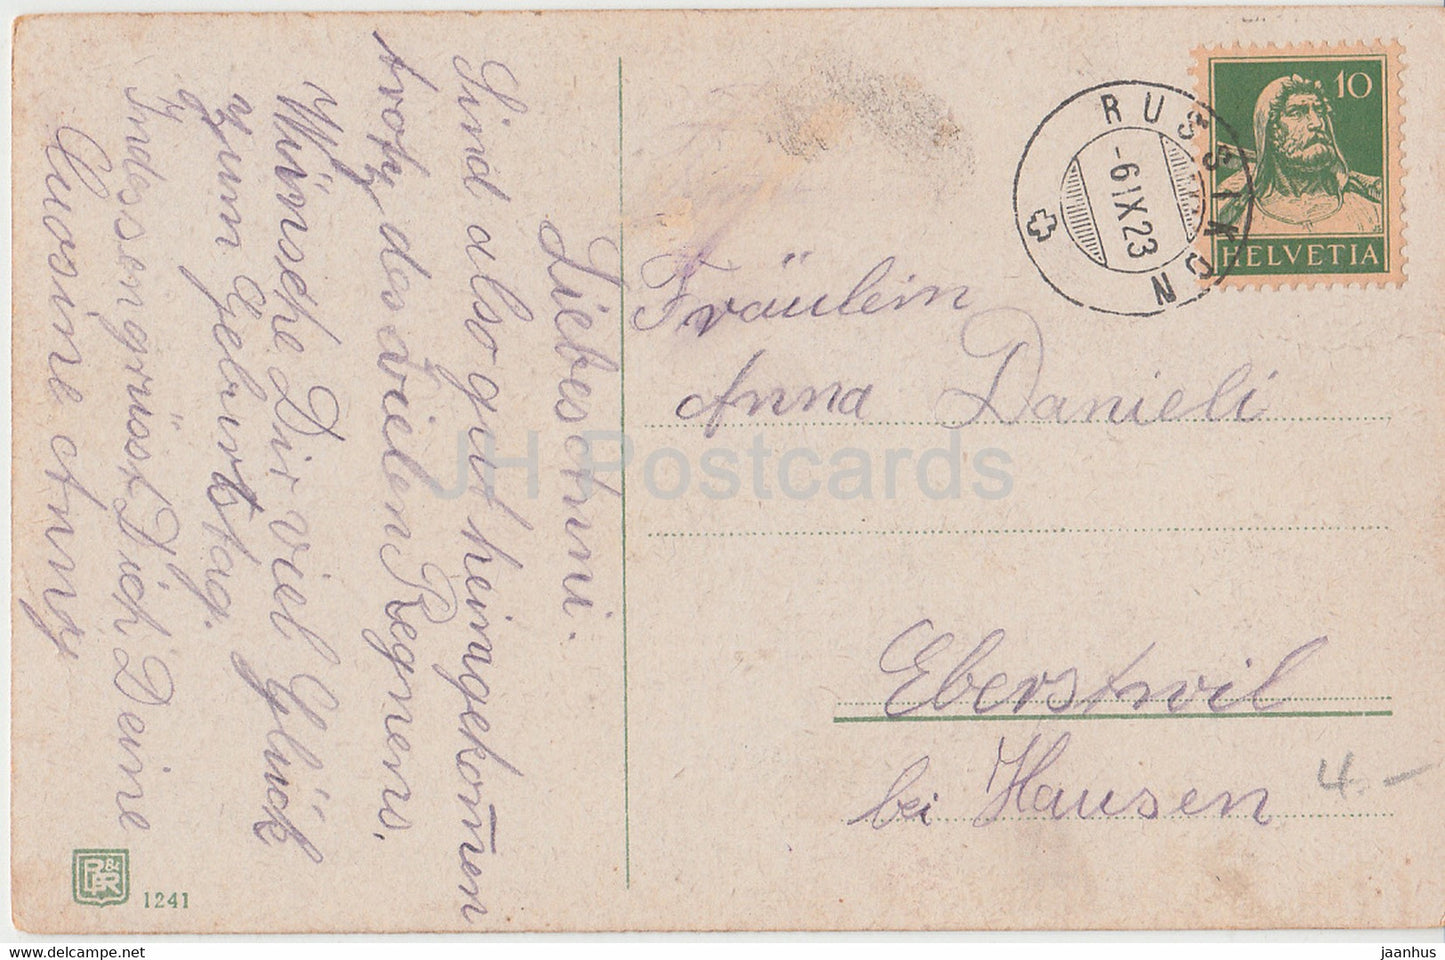 Liebes Anni.
Sind also gut heimgekom̄en
trotz des vielen Regnens.
Wünsche Dir viel Glück
zum Geburtstag.
Indessen grüsst Dich Deine
Cuosine Anny
RUSSIKON
-6.IX.23
10
HELVETIA
Fräulein
Anna Danieli
Eberstwil
bei Hausen
4.-
JH Postcards
1241
www.delcampe.net
jaanhus